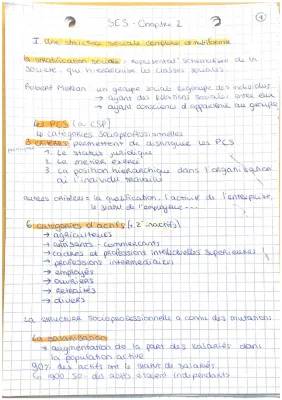 SES - Chapitre 2
1
I. Une structure sociale complexe et multiforme
la stratification sociale : représentation schématique de la
société, qui hiérarchise les classes sociales
Robert Merton un groupe social regroupe des individus
→ ayant des relations sociales entre eux
→ ayant conscience d'appartenir au groupe
les PCS (ex CSP)
↳ catégories socioprofessionnelles
3 critères permettent de distinguer les PCS
1. Le statut juridique
2. Le métier exercé
3. La position hiérarchique dans l'organisation
où l'individu travaille
autres critères : la qualification, l'activité de l'entreprise,
la taille de l'employeur ...
6 catégories d'actifs (+ 2 inactifs)
→ agriculteurs
→ artisans - commerçants
→ cadres et professions intellectuelles supérieures
→ professions intermédiaires
→ employés
→ ouvriers
→ retraités
→ divers
La structure socioprofessionnelle a connu des mutations
La salarisation
→ augmentation de la part des salariés dans
la population active
90% des actifs ont le statut de salariés
des actifs étaient indépendants